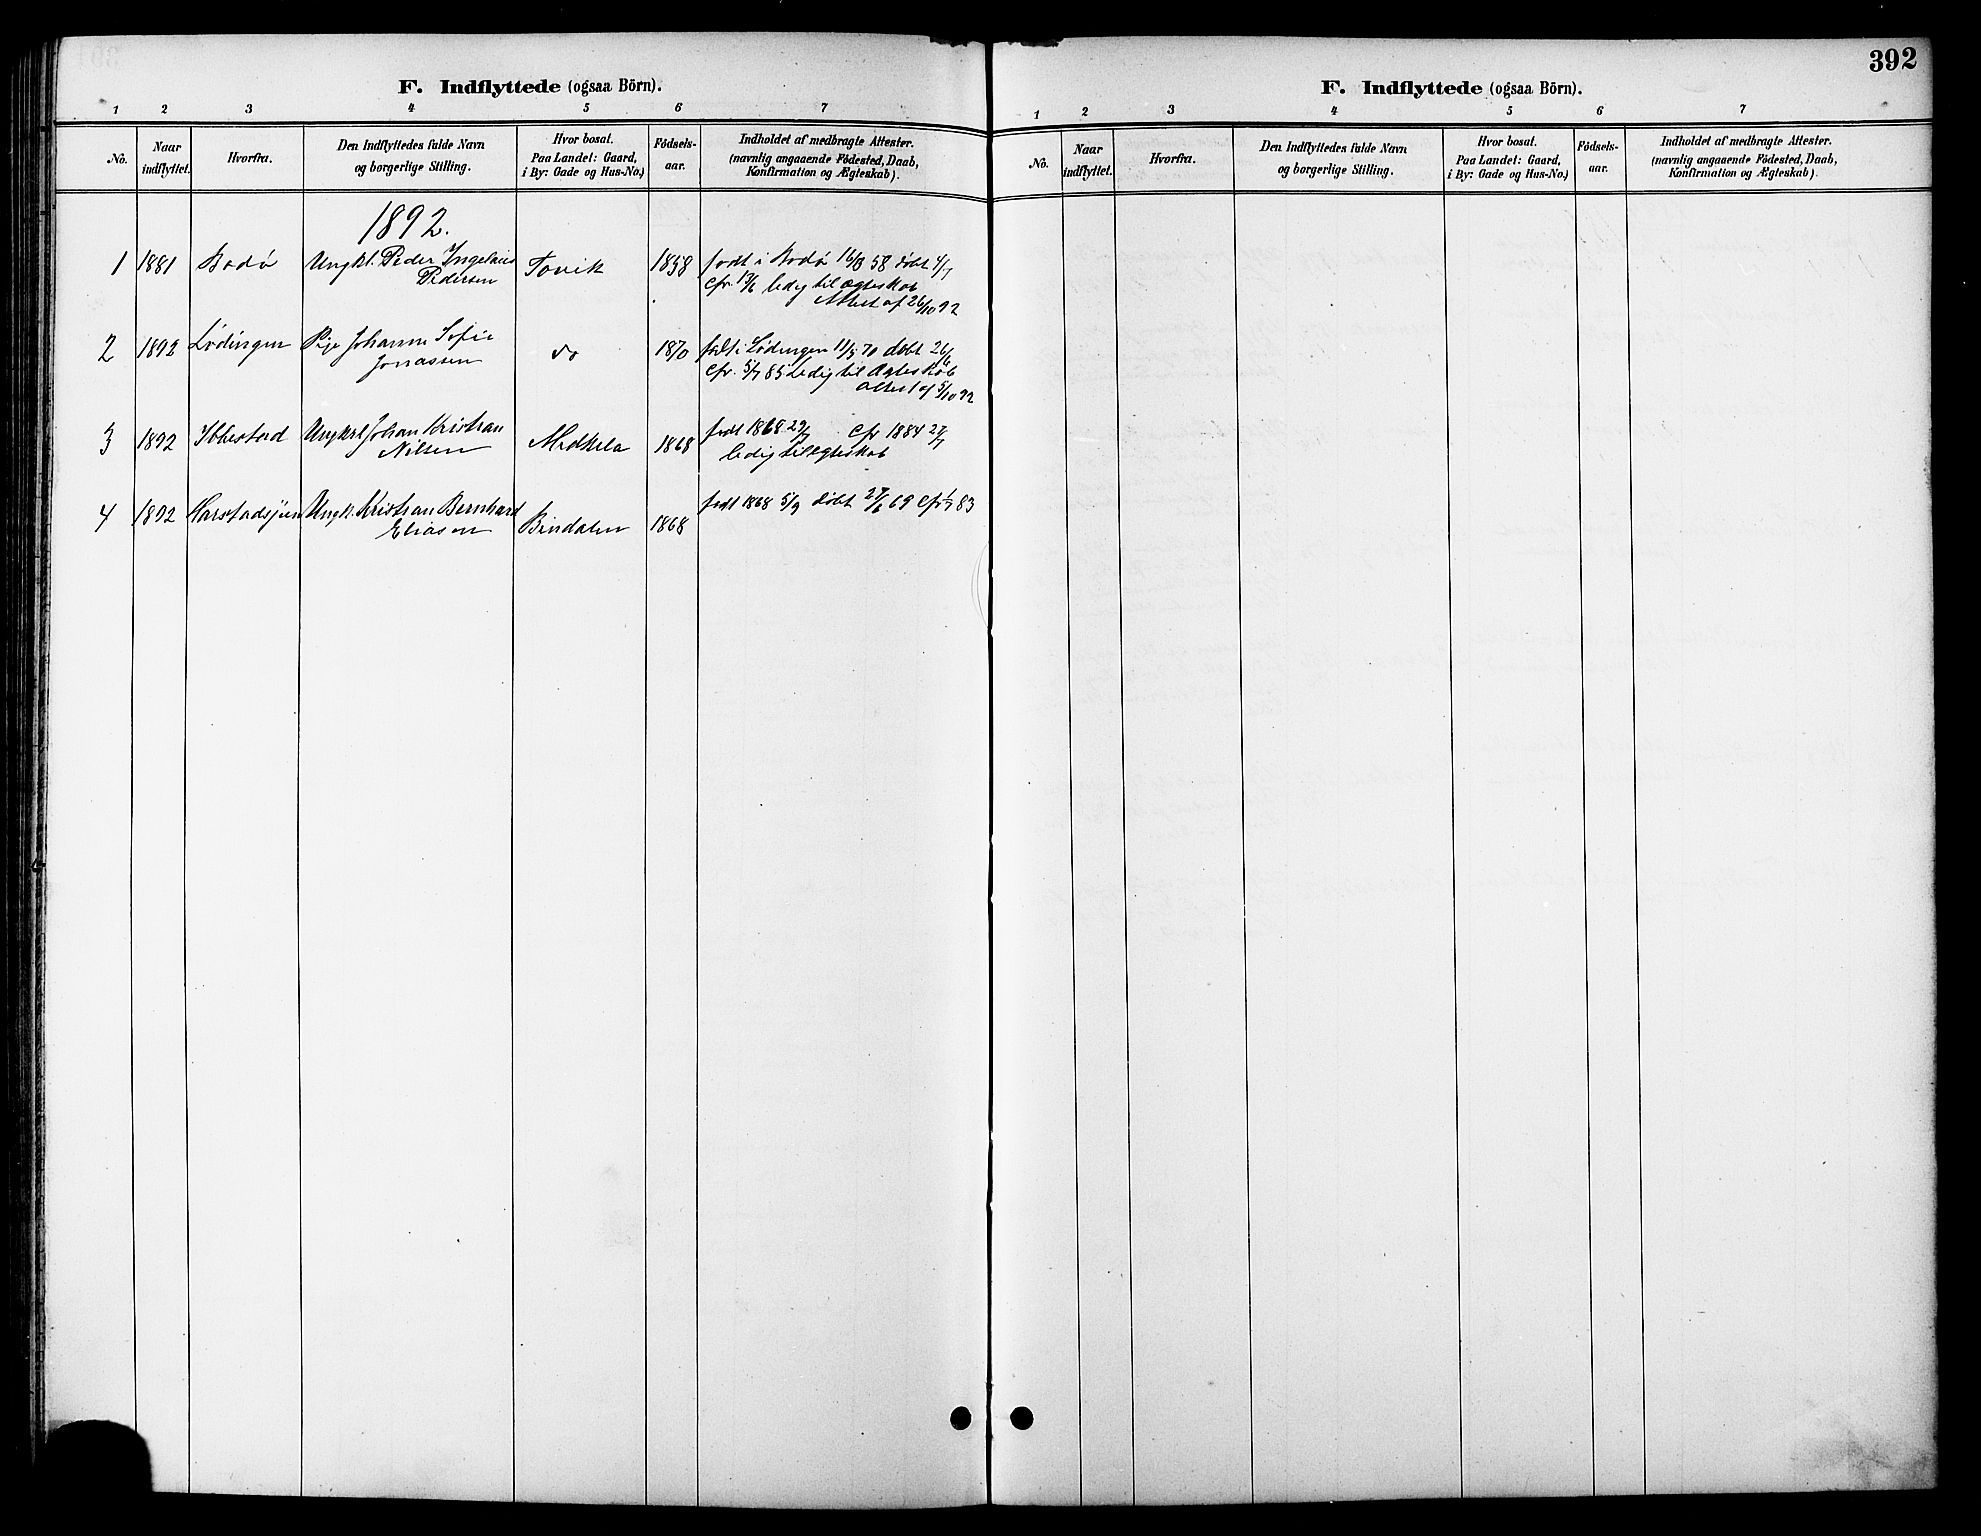 392
F. Indflyttede (ogsaa Börn).
1 2 3 4 5 6 7
No.
Naar indflyttet.
Hvorfra.
Den Indflyttedes fulde Navn
og borgerlige Stilling.
Hvor bosat.
Paa Landet: Gaard,
i By: Gade og Hus-No.)
Födsels-
aar.
Indholdet af medbragte Attester.
(navnlig angaaende Födested, Daab,
Konfirmation og Ægteskab).
1892.
1 1881 Bodø Ungkl. Peder Ingelius Tovik 1858 født i Bodø 16/3 58 døbt 4/7
Pedersen cfr. 13/6 ledig til ægteskab
Attest af 26/10 92
2 1892 Lødingen Pige Johanne Sofie do 1870 født i Lødingen 11/5 70 døbt 26/6
Jonassen cfr. 5/7 85 Ledig til Ægteskab
attest af 5/10 92
3 1892 Ibbestad Ungkrl Johan Kristian Medkila 1868 født 1868 29/7 cfr 1884 27/7
Nilsen ledig til ægteskab
4 1892 Harstadsjøen Ungk. Kristian Bernhard Bindalen 1868 født 1868 5/9 døbt 27/6 69 cfr 1/7 83
Eliasen
F. Indflyttede (ogsaa Börn).
1 2 3 4 5 6 7
No.
Naar
indflyttet.
Hvorfra.
Den Indflyttedes fulde Navn
og borgerlige Stilling.
Hvor bosat.
Paa Landet: Gaard,
i By: Gade og Hus-No.)
Födsels-
aar.
Indholdet af medbragte Attester.
(navnlig angaaende Födested, Daab,
Konfirmation og Ægteskab).